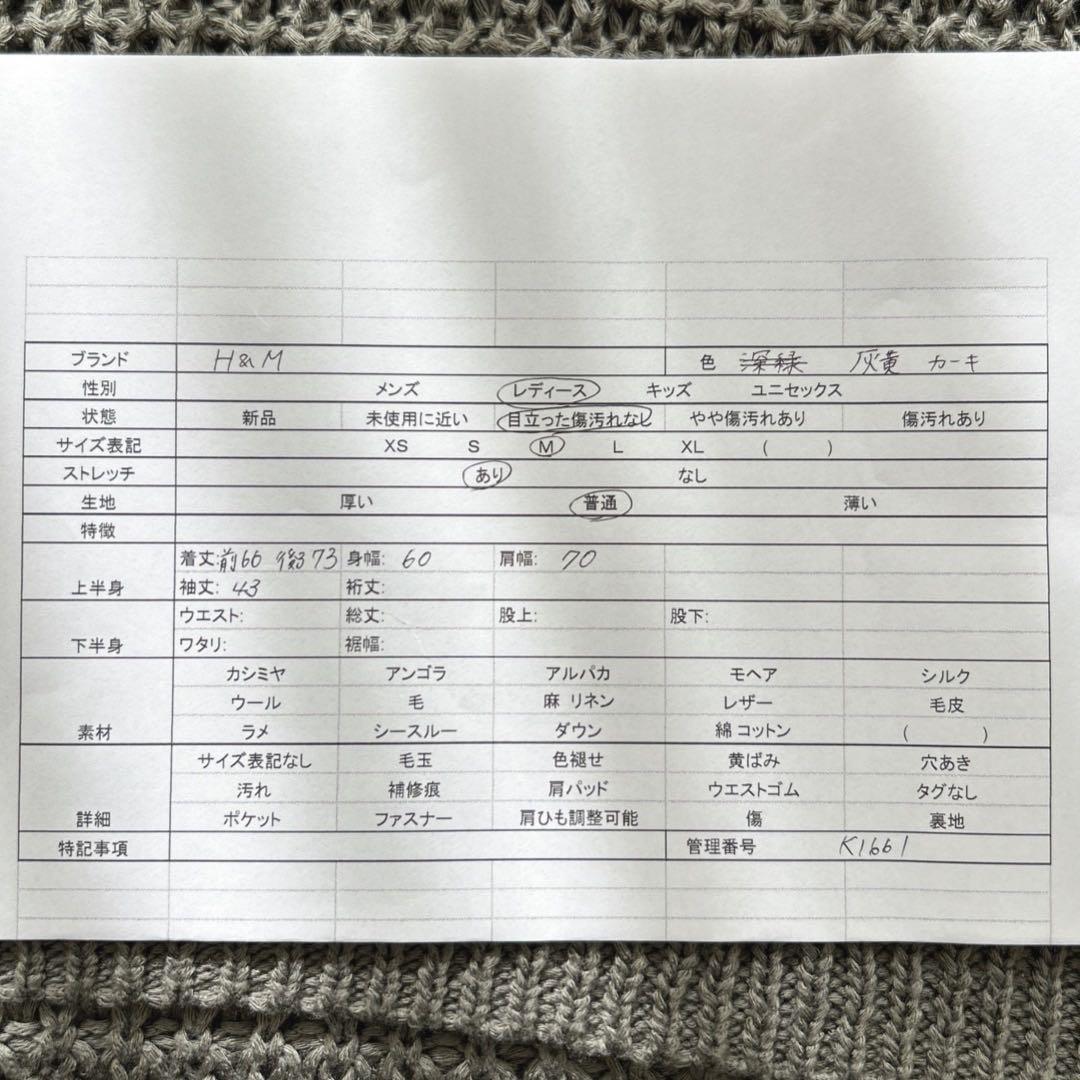 ブランド H&M 色 深緑 灰黄 カーキ
性別 メンズ レディース キッズ ユニセックス
状態 新品 未使用に近い 目立った傷汚れなし やや傷汚れあり 傷汚れあり
サイズ表記 XS S M L XL ( )
ストレッチ あり なし
生地 厚い 普通 薄い
特徴
着丈:前66 後ろ73 身幅: 60 肩幅: 70
上半身 袖丈: 43 裄丈:
ウエスト: 総丈: 股上: 股下:
下半身 ワタリ: 裾幅:
カシミヤ アンゴラ アルパカ モヘア シルク
ウール 毛 麻 リネン レザー 毛皮
素材 ラメ シースルー ダウン 綿 コットン ( )
サイズ表記なし 毛玉 色褪せ 黄ばみ 穴あき
汚れ 補修痕 肩パッド ウエストゴム タグなし
詳細 ポケット ファスナー 肩ひも調整可能 傷 裏地
特記事項 管理番号 K1661